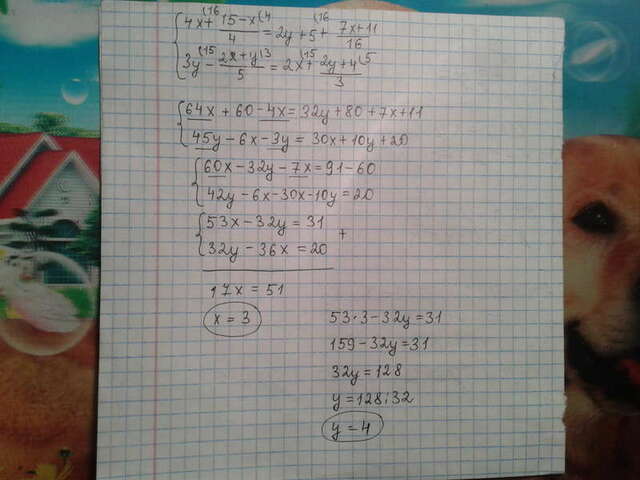 4x⁽¹⁶ + 15-x⁽⁴/4 = 2y + 5⁽¹⁶ + 7x+11/16
3y⁽¹⁵ - 2x+y⁽³/5 = 2x⁽¹⁵ + 2y+4⁽⁵/3
64x + 60 - 4x = 32y + 80 + 7x + 11
45y - 6x - 3y = 30x + 10y + 20
60x - 32y - 7x = 91 - 60
42y - 6x - 30x - 10y = 20
53x - 32y = 31
32y - 36x = 20 +
17x = 51
x = 3
53·3 - 32y = 31
159 - 32y = 31
32y = 128
y = 128:32
y = 4